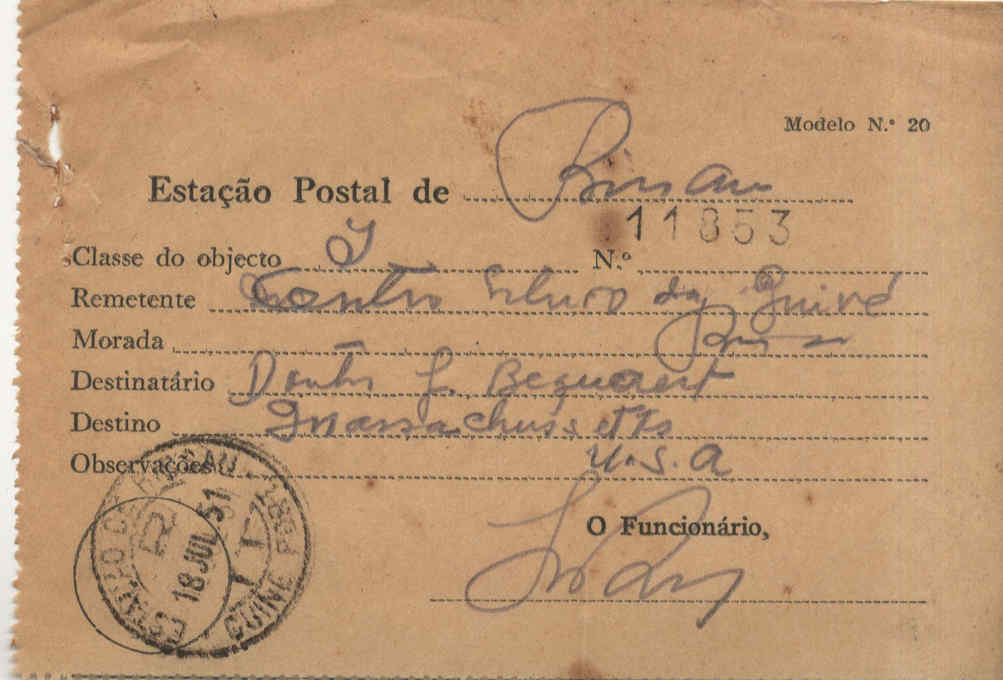 Modelo N.º 20
Estação Postal de Bissau
11853
Classe do objecto N.º
Remetente Centro Estudos da Guiné
Morada Bissau
Destinatário J. Bequaert
Destino Massachussetts
Observações U.S.A
O Funcionário,
ESTAÇÃO DE BISSAU
R
18 JUL 51
GUINÉ